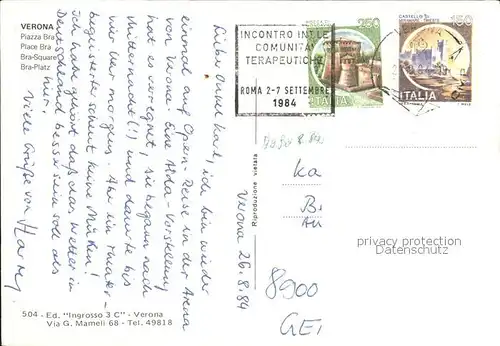 VERONA
Piazza Bra
Place Bra
Bra-Square
Bra-Platz
Lieber Onkel Karl, ich bin wieder
einmal auf Opern-Reise in der Arena
von Verona. Eine Aida-Vorstellung
hat es verregnet, sie begann nach
Mitternacht (!) und dauerte bis
vier Uhr morgens. Aber ein Musik-
begeisterter scheut keine Mühen!
Ich habe gehört daß das Wetter in
Deutschland besser sein soll als
hier.
Viele Grüße von
Verona 26.8.84
504 - Ed. "Ingrosso 3 C" - Verona
Via G. Mameli 68 - Tel. 49818
Riproduzione vietata
INCONTRO INT.LE
COMUNITA'
TERAPEUTICHE
ROMA 2-7 SETTEMBRE
1984
250
ITALIA
CASTELLO DI
150
ITALIA
8900
privacy protection
Datenschutz